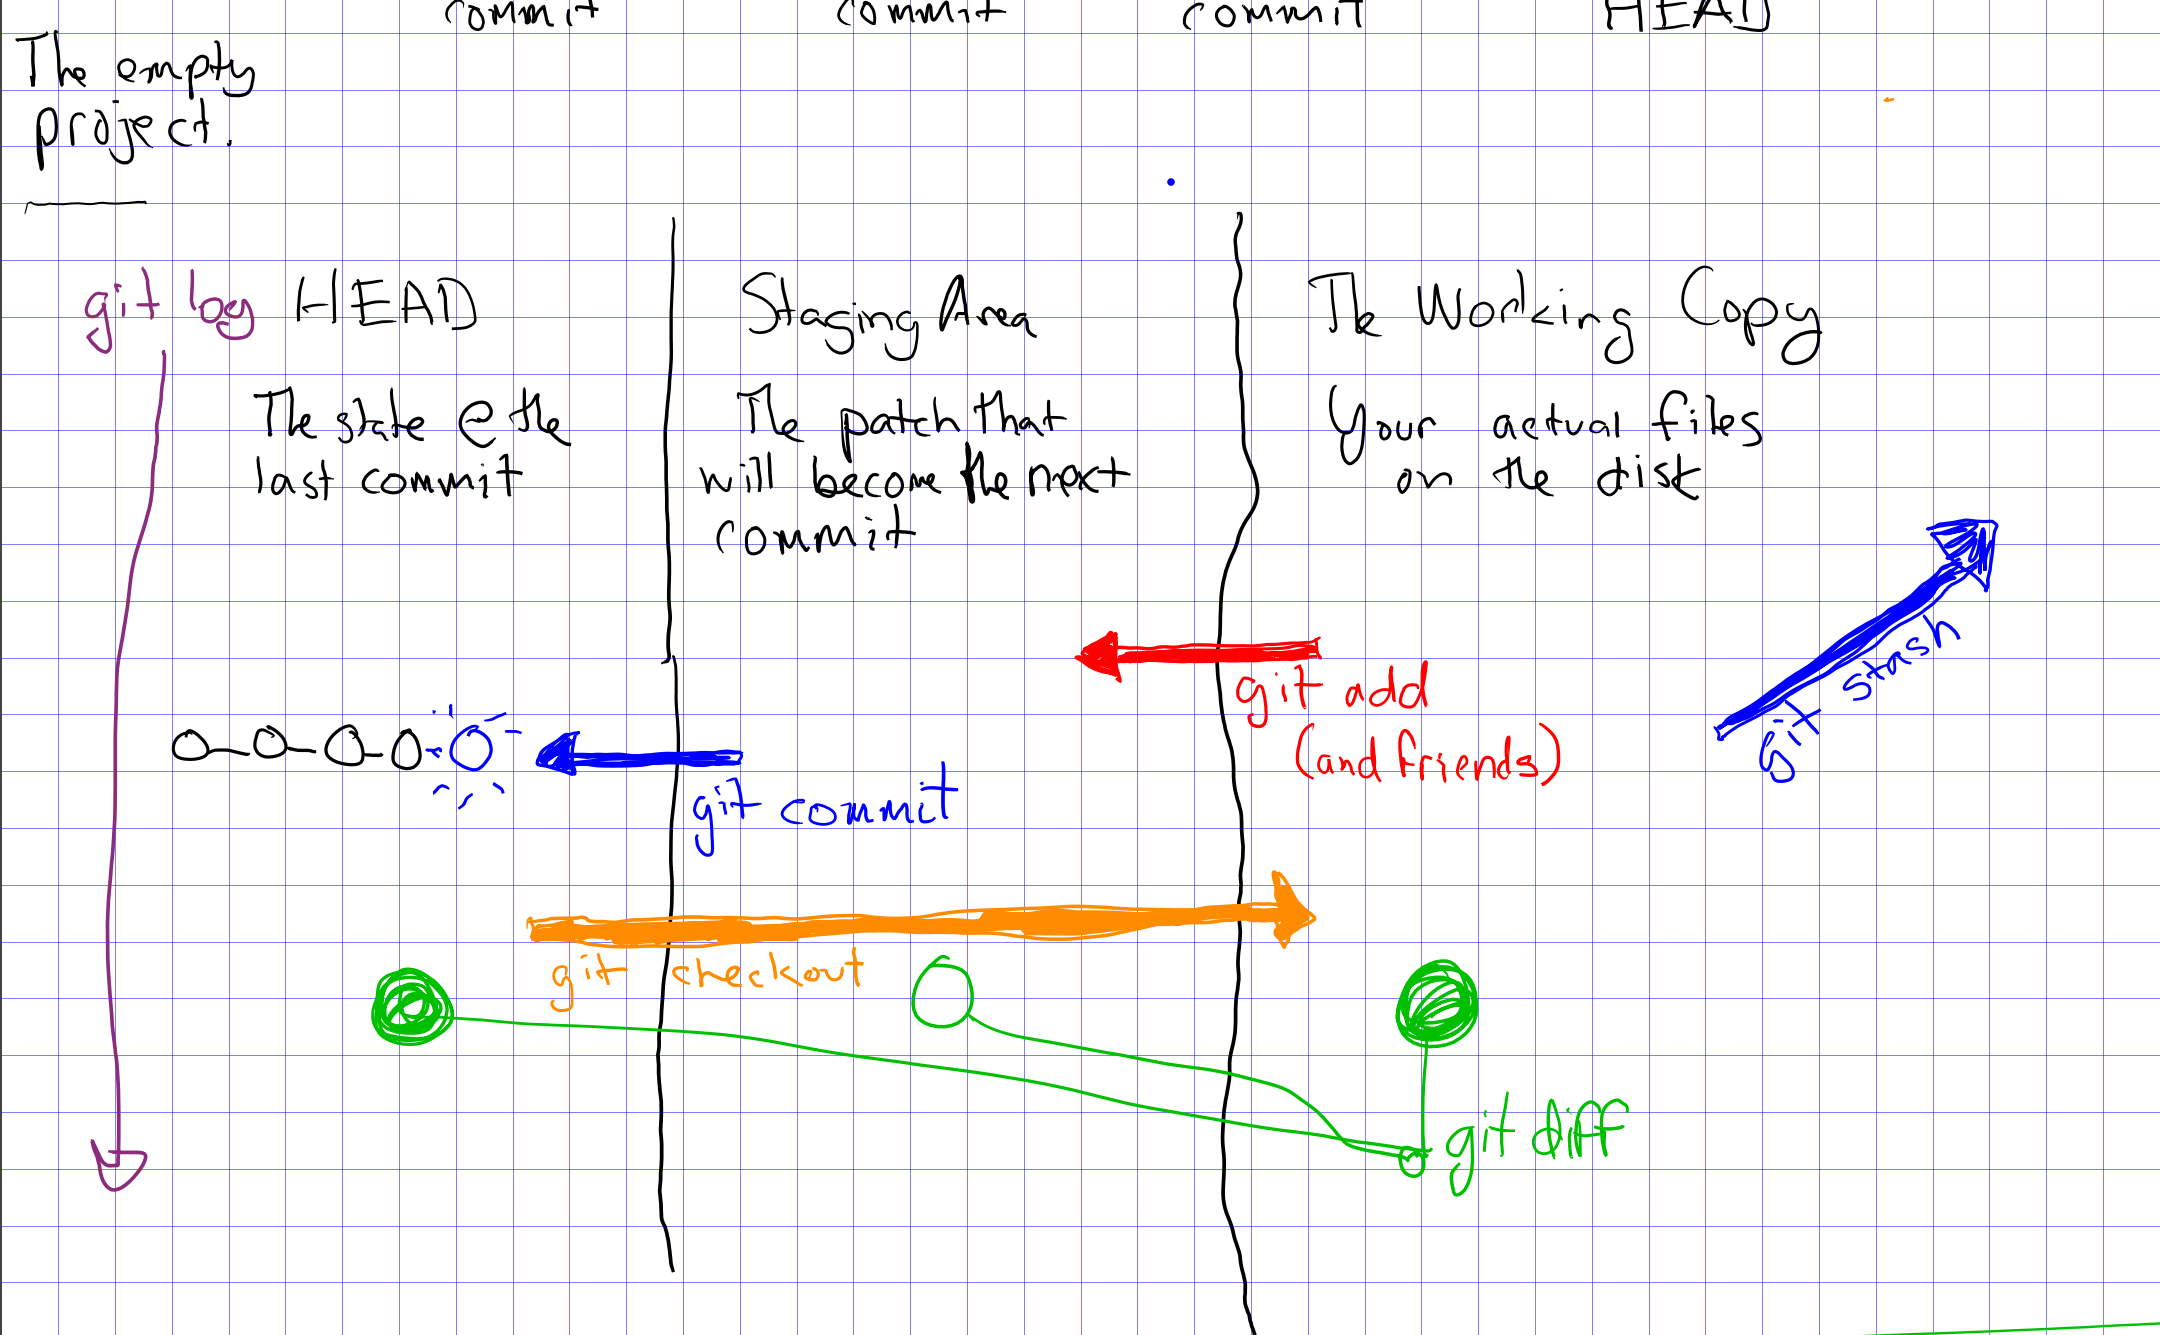 commit commit commit HEAD
The empty
project.
git log HEAD
The state @ the
last commit
Staging Area
The patch that
will become the next
commit
The Working Copy
Your actual files
on the disk
git add
(and friends)
git stash
git commit
git checkout
git diff